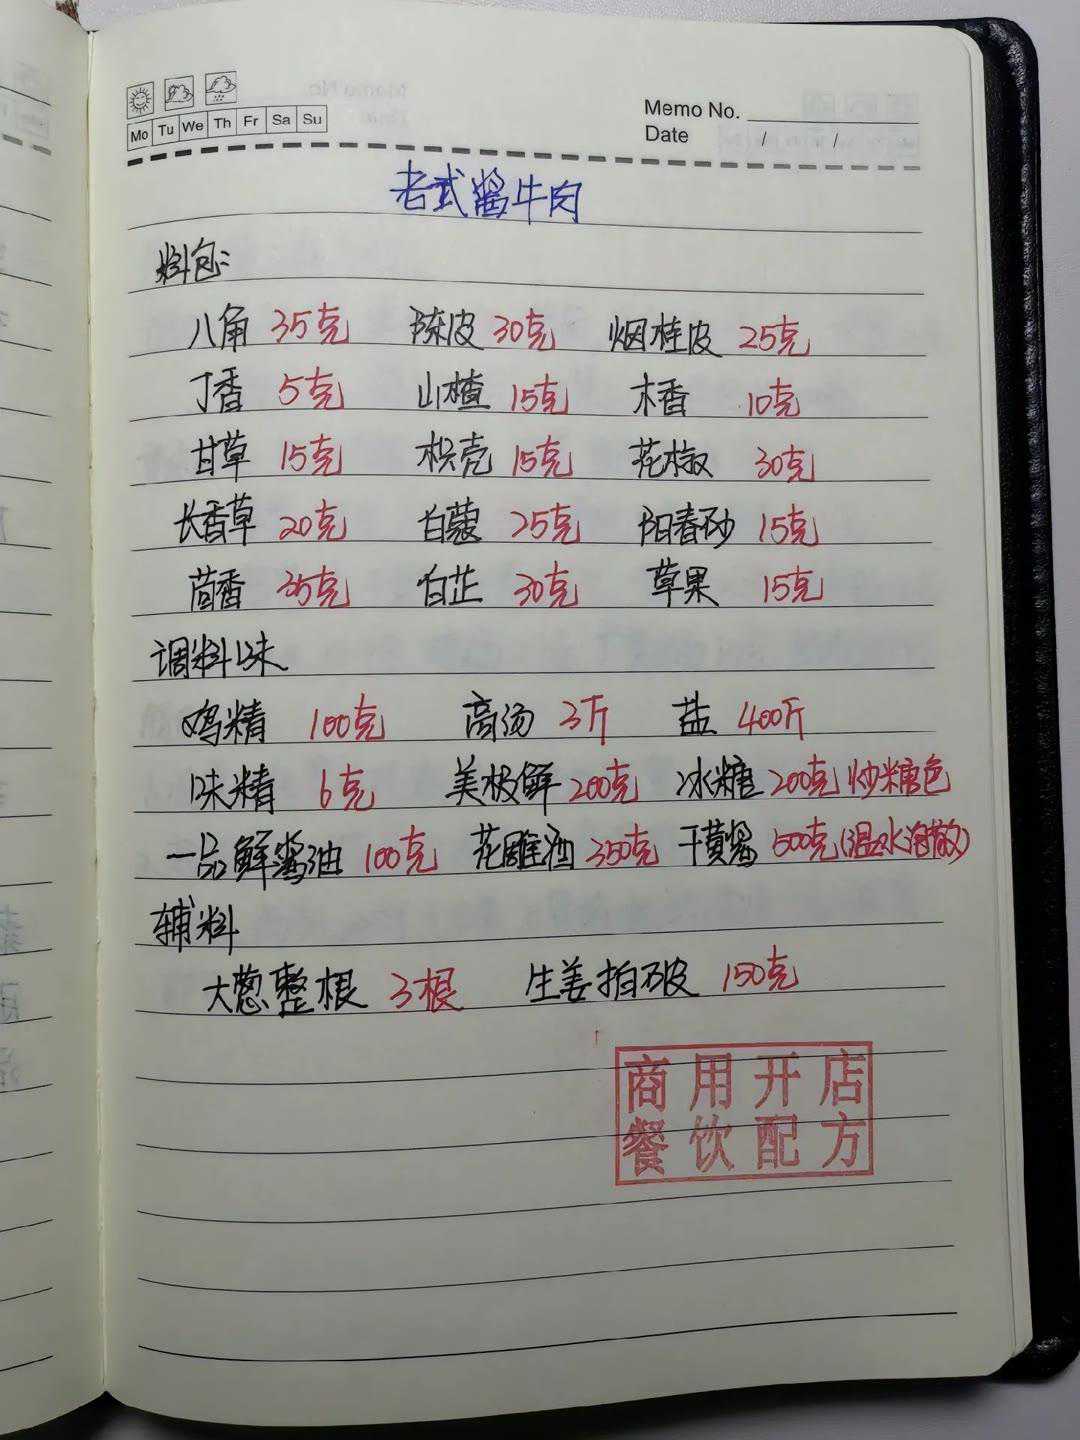 Memo No.
Mo Tu We Th Fr Sa Su
Date / /
老式酱牛肉
料包:
八角 35克 陈皮 30克 烟桂皮 25克
丁香 5克 山楂 15克 木香 10克
甘草 15克 枳壳 15克 花椒 30克
长香草 20克 白蔻 25克 阳春砂 15克
茴香 35克 白芷 30克 草果 15克
调料味
鸡精 100克 高汤 3斤 盐 400斤
味精 6克 美极鲜 200克 冰糖 200克炒糖色
一品鲜酱油 100克 花雕酒 350克 干黄酱 500克(温水泡散)
辅料
大葱整根 3根 生姜拍破 150克
商用开店
餐饮配方